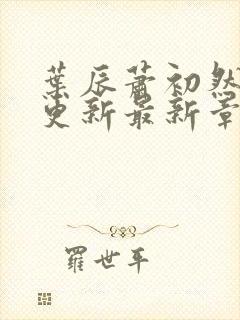 葉辰蕭初然
更新最新章
羅世平